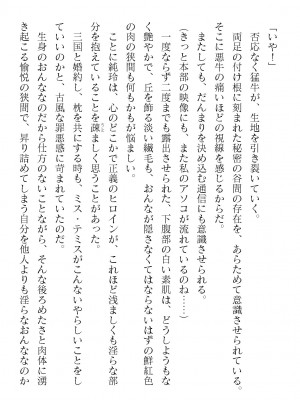 「いや！」
　否応なく猛牛が、生地を引き裂いていく。
　両足の付け根に刻まれた秘密の谷間の存在を、あらためて意識させられている。
そこに悪牛の痛いほどの視線を感じるからだ。
　またしても、だんまりを決め込む通信にも意識させられる。
（きっと本部の映像にも、また私のアソコが流れているのね……）
　一度ならず二度までも露出させられた、下腹部の白い素肌は、どうしようもな
く艶やかで、丘を飾る淡い繊毛も、おんなが隠さなくてはならないはずの鮮紅色
の肉の狭間も何もかもが悩ましい。
　ことに純玲は、心のどこかで正義のヒロインが、これほど浅ましくも淫らな部
分を抱えていることを疎ましく思うことがあった。
　三国と婚約し、枕を共にする時も、ミス・テミスがこんないやらしいことをし
ていいのかと、古風な罪悪感に苛まれていたのだ。
　生身のおんななのだから仕方のないことながら、そんな後ろめたさと肉体に湧
き起こる愉悦の狭間で、昇り詰めてしまう自分を他人よりも淫らなおんななのか